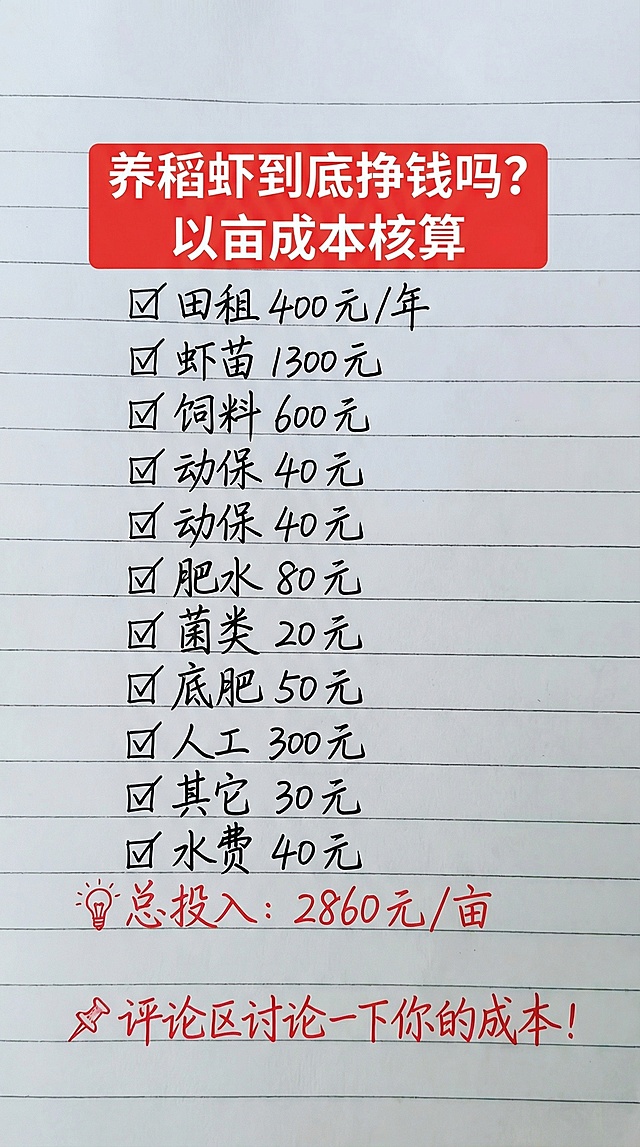 养稻虾到底挣钱吗？
以亩成本核算
田租 400元/年
虾苗 1300元
饲料 600元
动保 40元
动保 40元
肥水 80元
菌类 20元
底肥 50元
人工 300元
其它 30元
水费 40元
总投入：2860元/亩
评论区讨论一下你的成本！